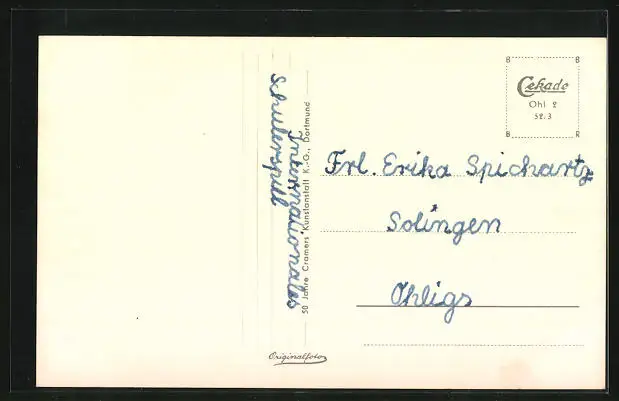 Internationales
Schülerspill
50 Jahre Cramers Kunstanstalt K.-G., Dortmund
Originalfoto
B B
Cekade
Ohl 2
52.3
B R
Frl. Erika Spichartz
Solingen
Ohligs